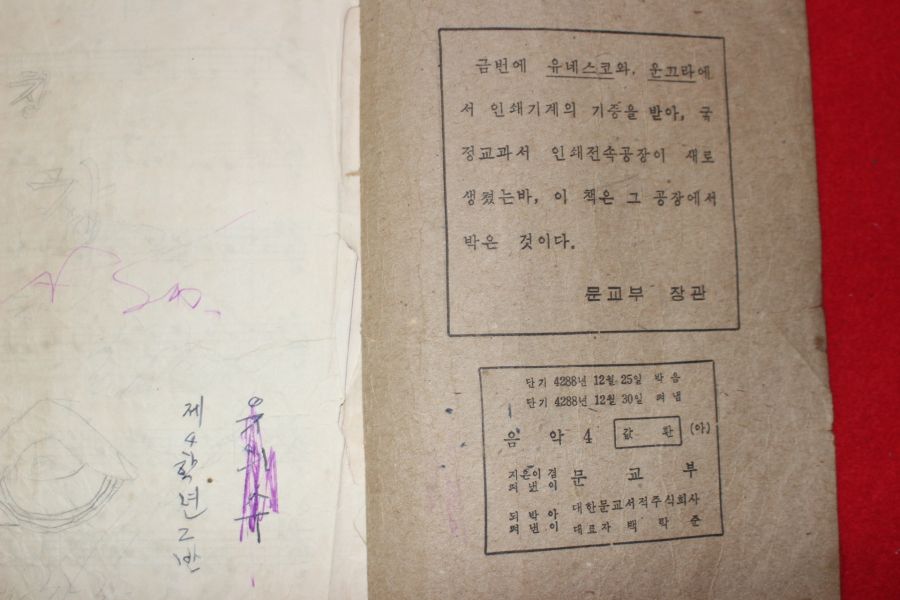 제4학년2반
금번에 유네스코와, 운끄라에
서 인쇄기계의 기증을 받아, 국
정교과서 인쇄전속공장이 새로
생겼는바, 이 책은 그 공장에서
박은 것이다.
문교부 장관
단기 4288년 12월 25일 박음
단기 4288년 12월 30일 펴냄
음 악 4 값 환 (아)
지은이겸 펴낸이 문 교 부
되박아 펴낸이 대한문교서적주식회사
대표자 백 낙 준